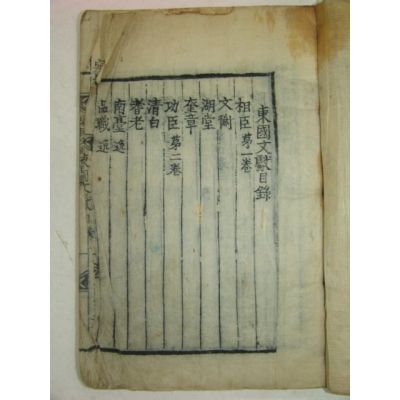 東國文獻目錄
相臣 第一卷
文衡
湖堂
奎章
功臣 第二卷
清白
耆老
南臺選